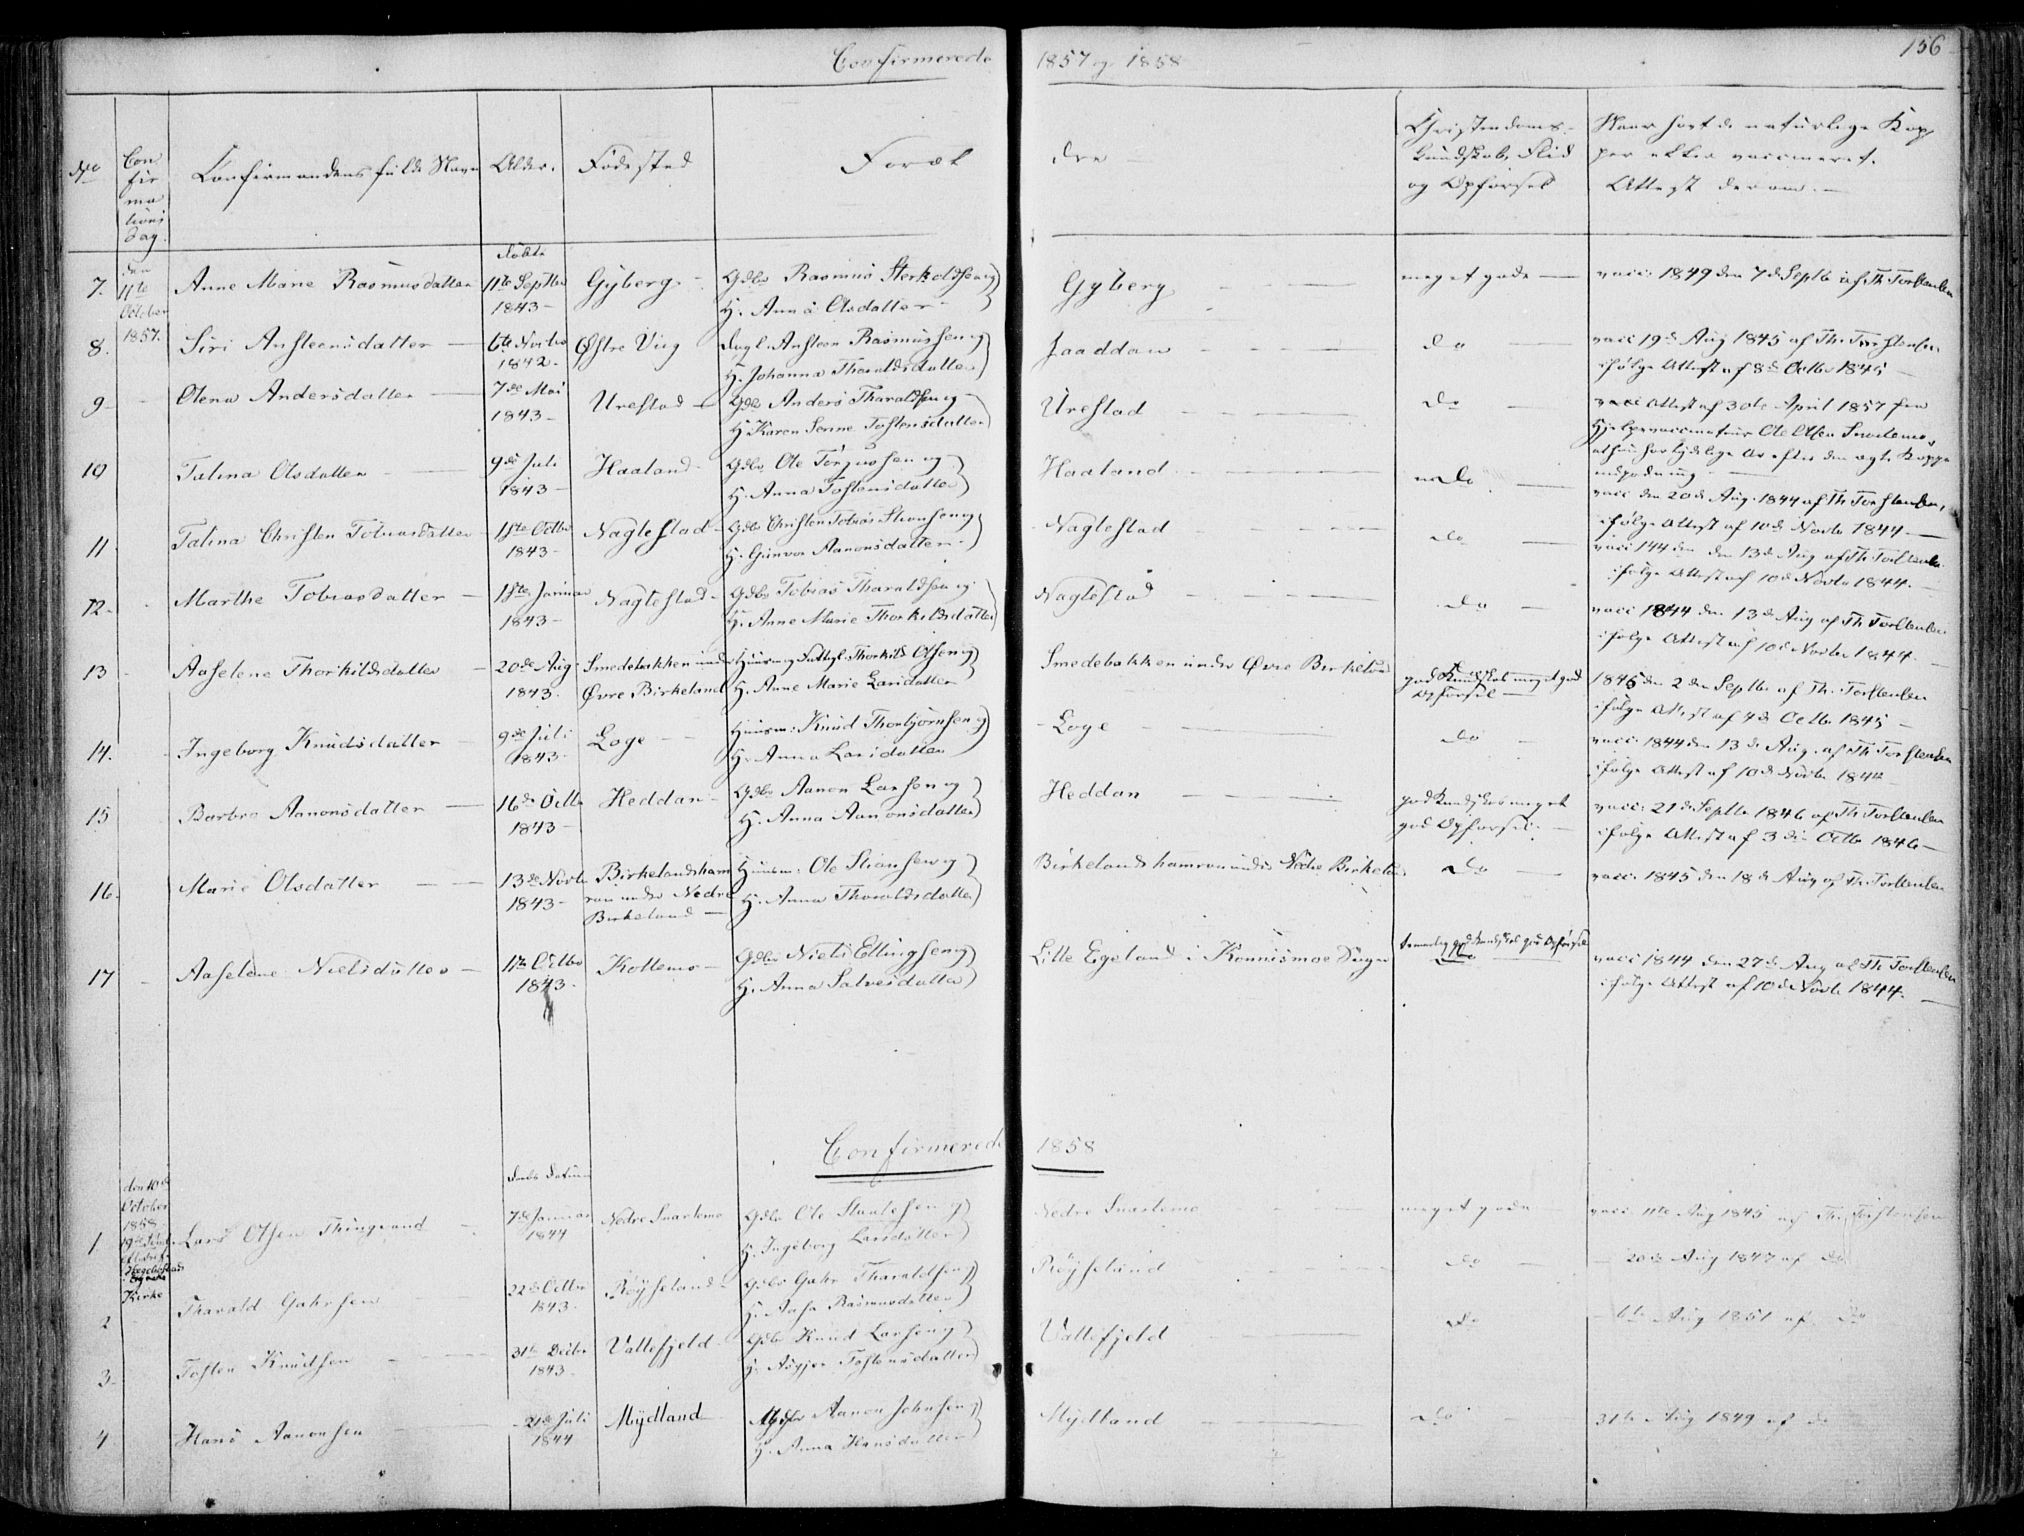 Confirmerede 1857 og 1858
156
No
Confirmations dag.
Confirmandens fulde Navn
Alder.
Fødested
Forældre
Christendoms-
Kundskab, Flid
og Opførsel
Naar havt de naturlige Kop-
per eller vaccineret.
Attest derom.
døbte
7. den 11te October 1857. Anne Marie Rasmusdatter 11te Septbr 1843 Gyberg Gdbr Rasmus Sterkoldsen og H. Anna Olsdatter Gyberg meget gode vacc. 1849 den 7de Septbr af Th. Torstensen
8. Siri Ansteensdatter 6te Novbr 1842. Østre Viig Dagl. Ansteen Rasmussen og H. Johanna Tharaldsdatter Jaaddan do vacc 19de Aug 1845 af Th. Torstensen
ifølge Attest af 8de Octbr 1845
9. Olena Andersdatter 7de Mai 1843 Urestad Gdb Anders Tharaldsen og H. Karen Serine Tostensdatter Urestad do Attest af 30te April 1857 fra
Hjelpevaccinateur Ole Olsen Snartemo,
at hun har tydelige Ar efter den ægte Koppe
indpodning
10 Talina Olsdatter 9de Juli 1843 Haaland Gdbr Ole Tørjussen og H. Anna Tostensdatter Haaland do vacc den 20de Aug. 1844 af Th Torstensen,
ifølge Attest af 10de Novbr 1844
11 Talina Christen Tobiasdatter Octbr 1843 Naglestad Gdbr Christen Tobias Stiansen og H. Gunvor Aanonsdatter Naglestad do vacc 144 den 13de Aug af Th Torstensen
ifølge Attest af 10de Novbr 1844.
12. Marthe Tobiasdatter Januar 1843 Naglestad Gdbr Tobias Tharaldsen og H. Anne Marie Thorkildsdatter Naglestad do vacc 1844 den 13de Aug af Th Torstensen
ifølge Attest af 10de Novbr 1844.
13 Aaselene Thorkildsdatter 20de Aug 1843. Smedebakken under Øvre Birkeland Huusm og Fattigl. Thorkild Olsen og H. Anne Marie Larsdatter Smedebakken under Øvre Birkeland god Kundskab meget god Opførsel 1845 den 2den Septbr af Th. Torstensen
ifølge Attest af 4de Octbr 1845
14. Ingeborg Knudsdatter 9de Juli 1843 Loge Huusm: Knud Thorbjørnsen og H. Anna Larsdatter Loge do vacc. 1844 den 13de Aug. af Th Torstensen
ifølge Attest af 10de Novbr 1844
15 Barbro Aanonsdatter 16de Octbr 1843 Heddan Gdbr Aanon Larsen og H. Anna Aanonsdatter Heddan god Kundskab meget god Opførsel. vacc. 21de Septbr 1846 af Th Torstensen
ifølge Attest af 3die Octbr 1846
16. Marie Olsdatter 13de Novbr 1843 Birkelandshamran under Nedre Birkeland Huusm: Ole Stiansen og H. Anna Tharaldsdatter Birkelandshamran under Nedre Birkeland do vacc. 1845 den 18de Aug af Th. Torstensen
17 Aaselene Nielsdatter Octbr 1843. Kollemo Gdbr Niels Ellingsen og H. Anna Salvesdatter Lille Egeland i Konnismoe Sogn temmelig god Kundskab god Opførsel vacc 1844 den 27de Aug af Th Torstensen
ifølge Attest af 10de Novbr 1844.
Confirmerede 1858
Daabs Datum
1. den 10de October 1858 Hægebostad Kirke Lars Olsen Thingvand 7de Januar 1844 Nedre Snartemo Gdbr Ole Stanlesen og H. Ingeborg Larsdatter Nedre Snartemo meget gode vacc. 11te Aug 1845 af Th. Torstensen
2 Tharald Gahrsen 22de Octbr 1843. Røyseland Gdbr Gahr Tharaldsen og H. Aasa Rasmusdatter Røyseland do 20de Aug 1847 af do
3. Tosten Knudsen 31te Decbr 1843 Vattefjeld Gdbr Knud Larsen og H. Asgjer Tostensdatter Vattefjeld do 6te Aug 1851 af do
4 Hans Aanonsen 21de Juli 1844 Mydland Gdbr Aanon Johnsen og H. Anna Hansdatter Mydland do 31te Aug 1849 af do